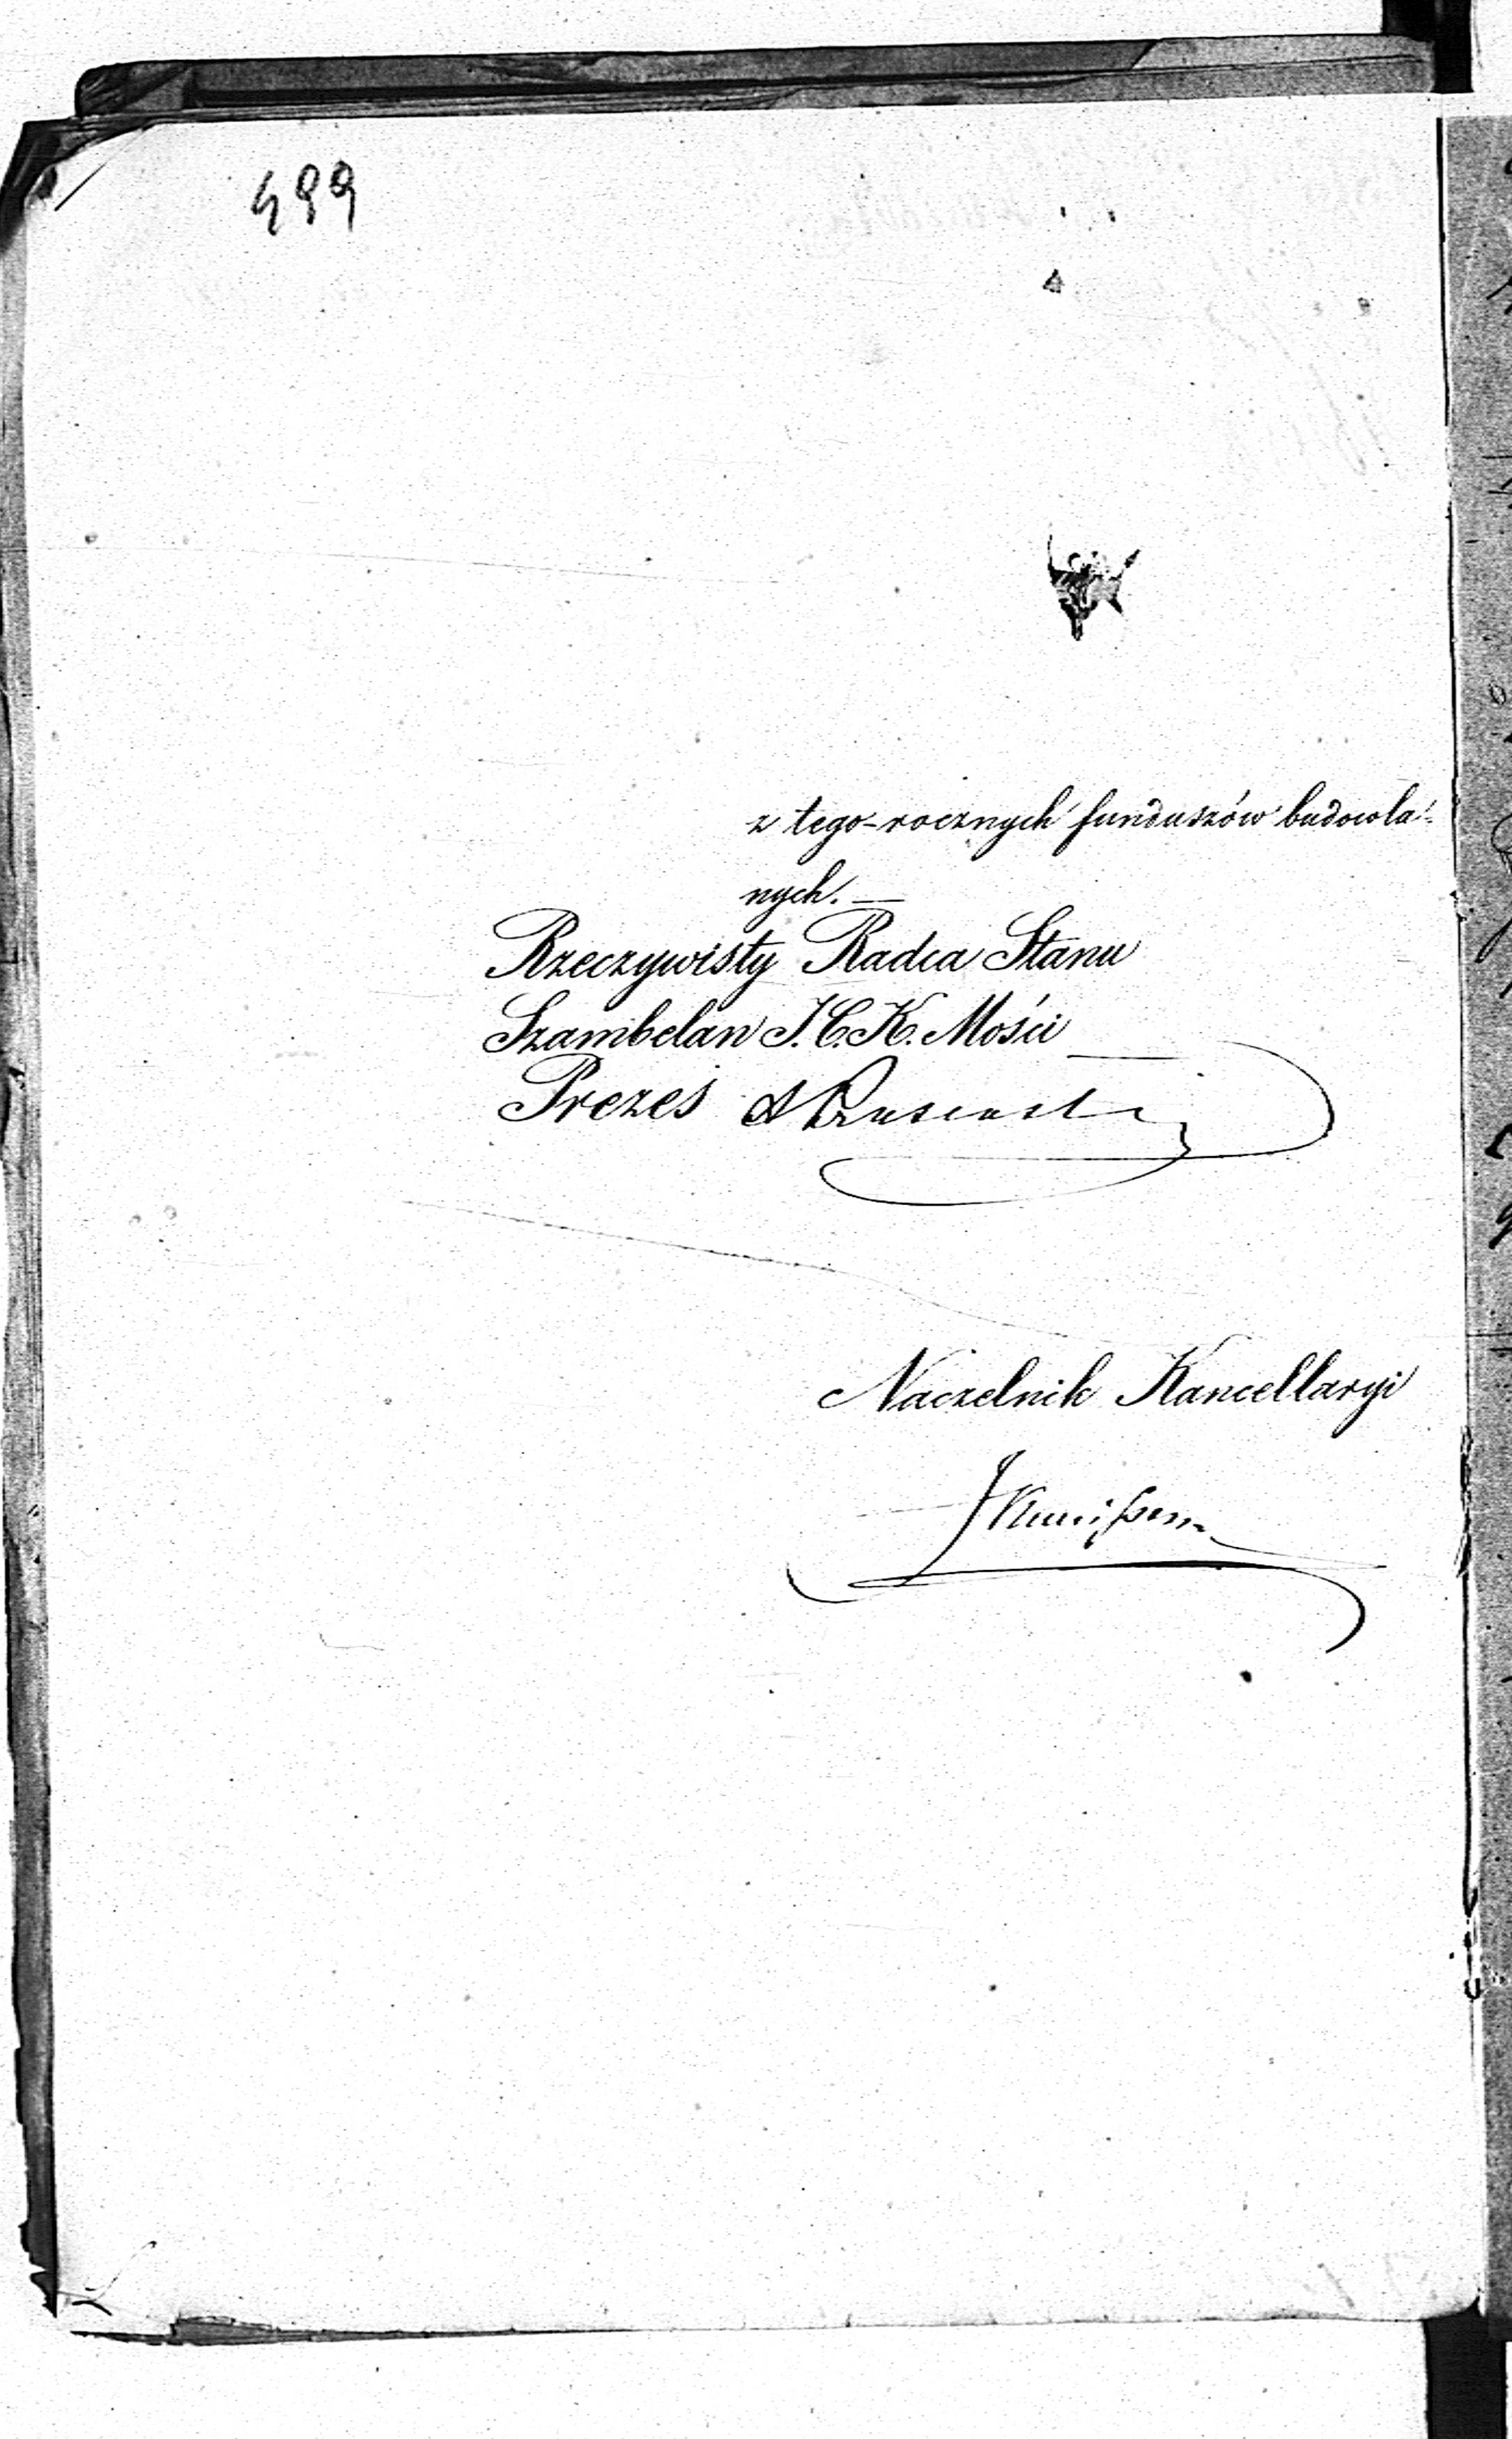 499
z tego-rocznych funduszów budowla-
nych. —
Rzeczywisty Radca Stanu
Szambelan J. C. K. Mości
Prezes
Naczelnik Kancellaryi